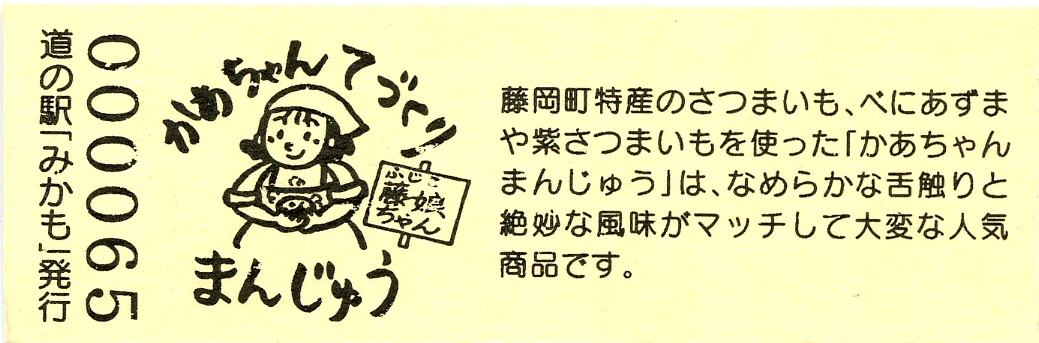 道の駅「みかも」発行
0000065
かあちゃんてづくり
ふじこ
藤娘
ちゃん
まんじゅう
藤岡町特産のさつまいも、べにあずま
や紫さつまいもを使った「かあちゃん
まんじゅう」は、なめらかな舌触りと
絶妙な風味がマッチして大変な人気
商品です。